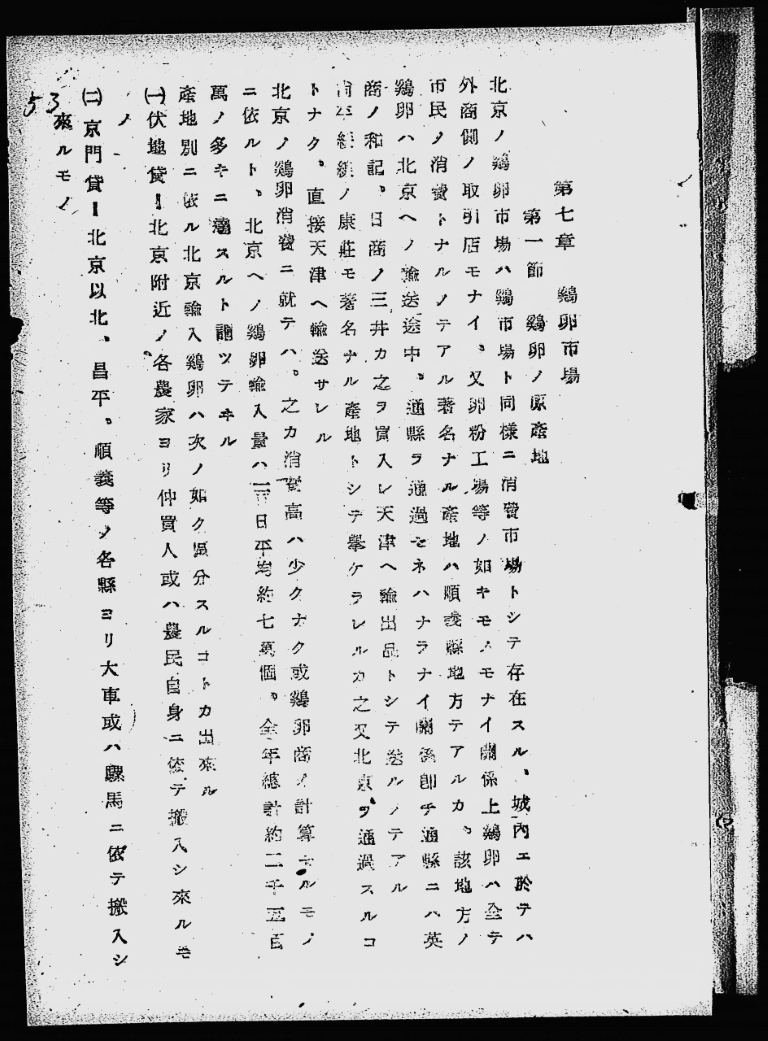 第七章　鷄卵市場
第一節　鷄卵ノ原產地
北京ノ鷄卵市場ハ鷄市場ト同樣ニ消費市場トシテ存在スル、城內エ於テハ
外商側ノ取引店モナイ、又卵粉工場等ノ如キモノモナイ關係上鷄卵ハ全テ
市民ノ消費トナルノテアル著名ナル產地ハ順義縣地方テアルカ、該地方ノ
鷄卵ハ北京ヘノ輸送途中、通縣ヲ通過セネハナラナイ關係卽チ通縣ニハ英
商ノ和記、日商ノ三井カ之ヲ買入レ天津ヘ輸出品トシテ送ルノテアル
ノ康莊モ著名ナル產地トシテ擧ケラレルカ之又北京ヲ通過スルコ
トナク、直接天津ヘ輸送サレル
北京ノ鷄卵消費ニ就テハ、之カ消費高ハ少クナク或鷄卵商ノ計算セルモノ
ニ依ルト、北京ヘノ鷄卵輸入量ハ一日平均約七萬個、全年總計約二千五百
萬ノ多キニ達スルト謂ツテヰル
產地別ニ依ル北京輸入鷄卵ハ次ノ如ク區分スルコトカ出來ル
㈠伏地貨ー北京附近ノ各農家ヨリ仲買人或ハ農民自身ニ依テ搬入シ來ルモ
ノ
㈡京門貨ー北京以北、昌平、順義等ノ各縣ヨリ大車或ハ騾馬ニ依テ搬入シ
來ルモノ
53